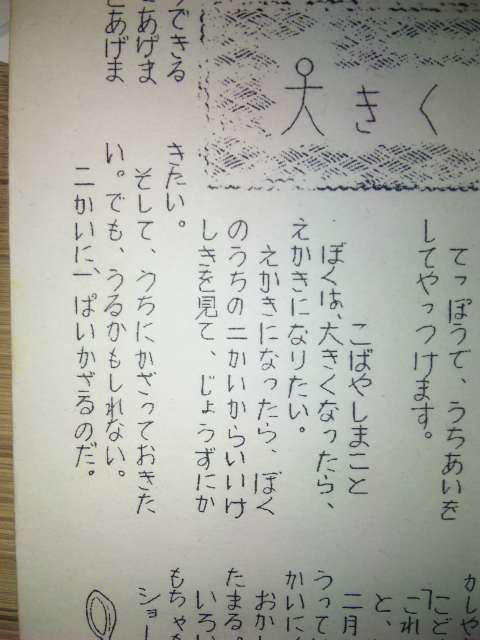 大きく
てっぽうで、うちあいを
してやっつけます。
こばやしまこと
ぼくは、大きくなったら、
えかきになりたい。
えかきになったら、ぼく
のうちの二かいからいいけ
しきを見て、じょうずにか
きたい。
そして、うちにかざっておきた
い。でも、うるかもしれない。
二かいに一ぱいかざるのだ。
できる
あげま
あげま
かしや
こど
これ
と、
二月
うって
かいに
おか
たまる。
いろい
もちゃ
ショー